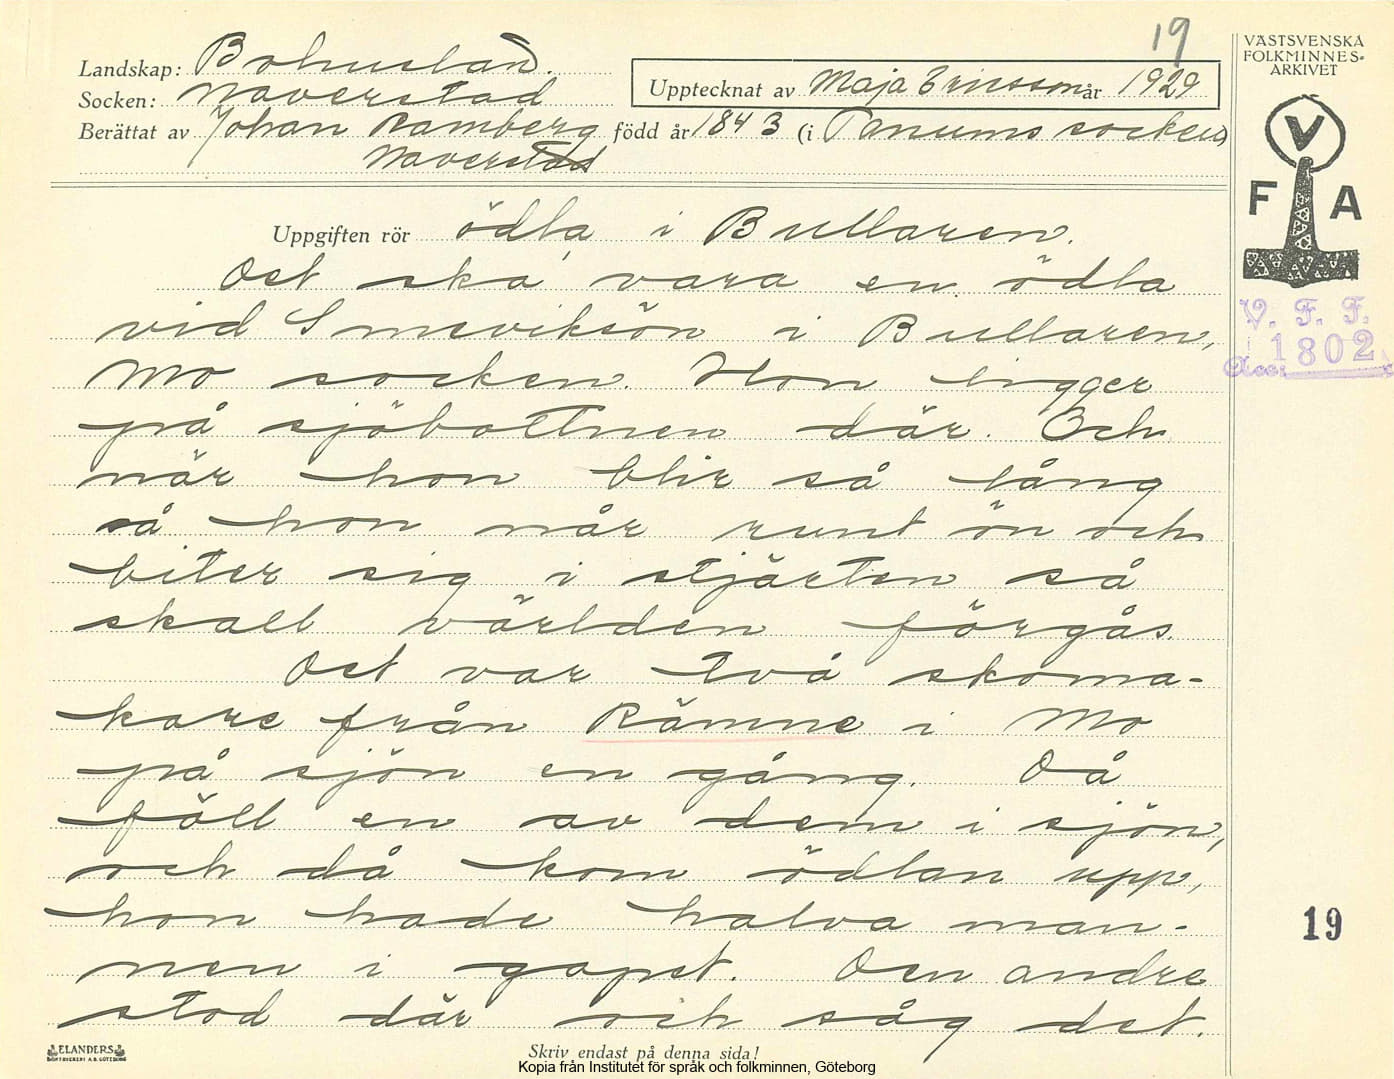 19
Landskap: Bohuslän.
Socken: Naverstad
Upptecknat av Maja Ericsson år 1929
Berättat av Johan Ramberg född år 1843 (i Tanums socken)
Naverstad
VÄSTSVENSKA
FOLKMINNES-
ARKIVET
V
F A
V. F. F.
Acc. 1802
Uppgiften rör ödla i Bullaren.
Det ska vara en ödla
vid Smeviksön i Bullaren,
Mo socken. Hon ligger
på sjöbottnen där. Och
när hon blir så lång
så hon når runt ön och
biter sig i stjärten så
skall världen förgås.
Det var två skoma-
kare från Rämne i Mo
på sjön en gång. Då
föll en av dem i sjön,
och då kom ödlan upp,
hon hade halva man-
nen i gapet. Den andre
stod där och såg det.
19
ELANDERS
BOKTRYCKERI A.B. GÖTEBORG
Skriv endast på denna sida!
Kopia från Institutet för språk och folkminnen, Göteborg